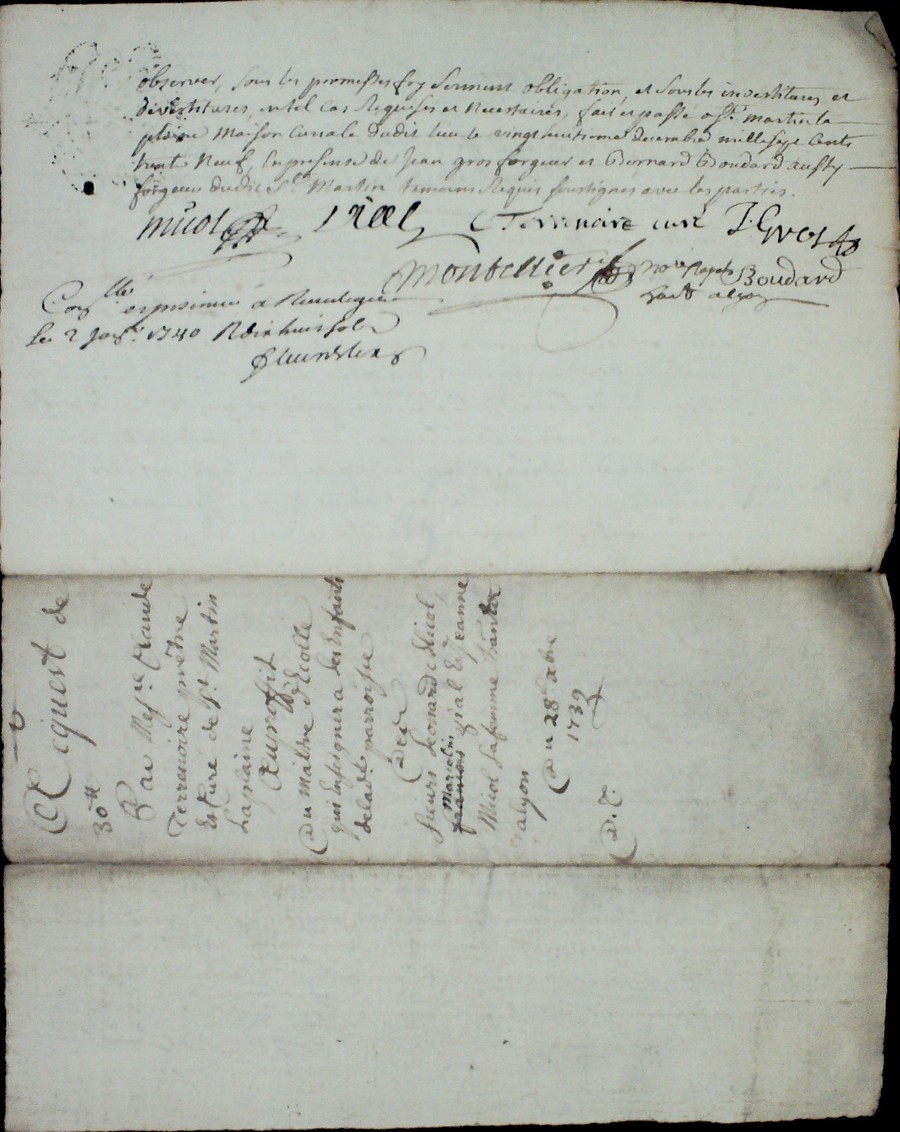 observer, sous les promesses foy serment obligation, et sous les investitures et
divestitures, en tel cas Requises et Necessaires, fait et passé a St. martin la
plaine Maison Curiale dudit lieu le vingt huitieme decembre mille sept Cents
trent Neuf, En presense de Jean gros forgeur et Bernard Boudard aussy
forgeur dudit St Martin temoins Requis soussignés avec les parties.
Micol
Terrenoire curé J. Gros
Montellier
Boudard
Conllé et
Le 2 Janr. 1740
Aquest de
30tt
Par Messre Claude
Terrenoire prêtre
Et Curé de St Martin
La plaine
Au proffit
Du Maitre d'Ecolle
qui Enseignera les Enfants
de lade parroisse
De
sieurs Leonard Micol,
Marcelin
francois Zial & Jeanne
Micol sa femme
Du 28e xbre
1739
D. T.